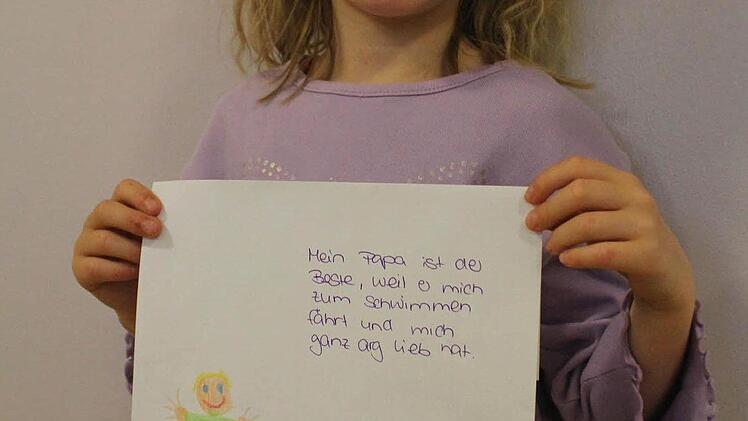 Mein Papa ist der
Beste, weil er mich
zum schwimmen
fährt und mich
ganz arg lieb hat.